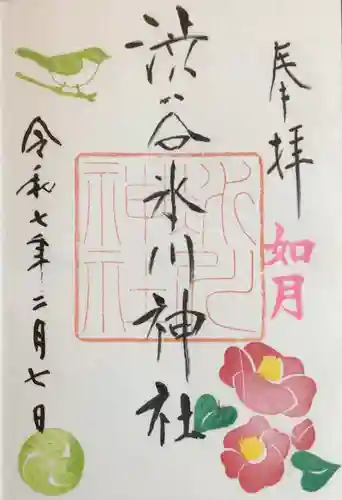 奉拝
如月
渋谷氷川神社
氷川
神
社
令和七年二月七日